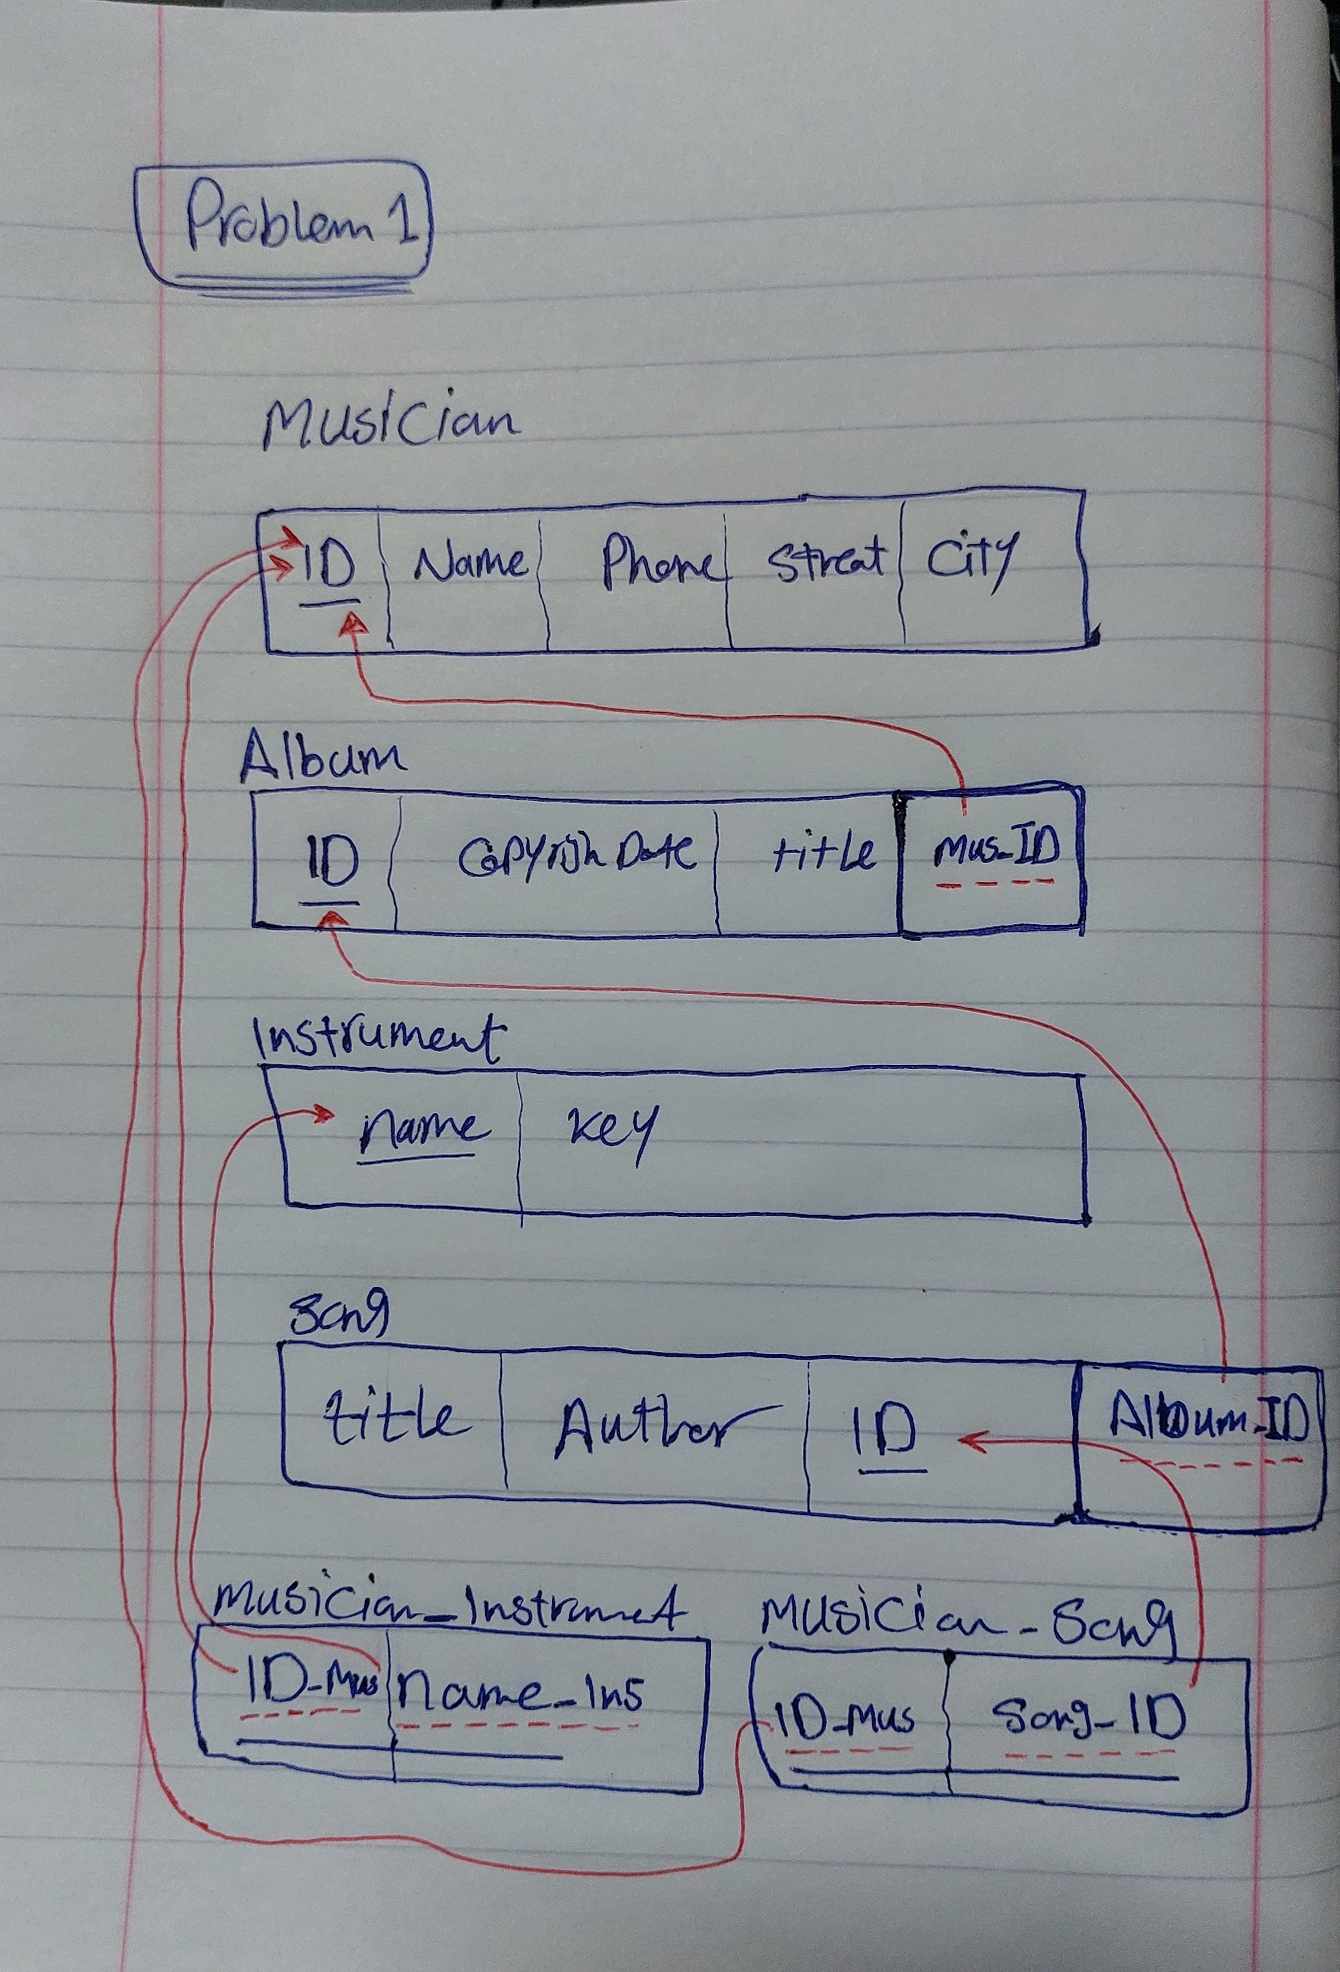 Problem 1
Musician
ID Name Phone Streat City
Album
ID CopyrighDate title Mus_ID
Instrument
name key
Song
title Author ID Album_ID
Musician_Instrumet Musician_Song
ID_Mus name_Ins ID_Mus Song_ID